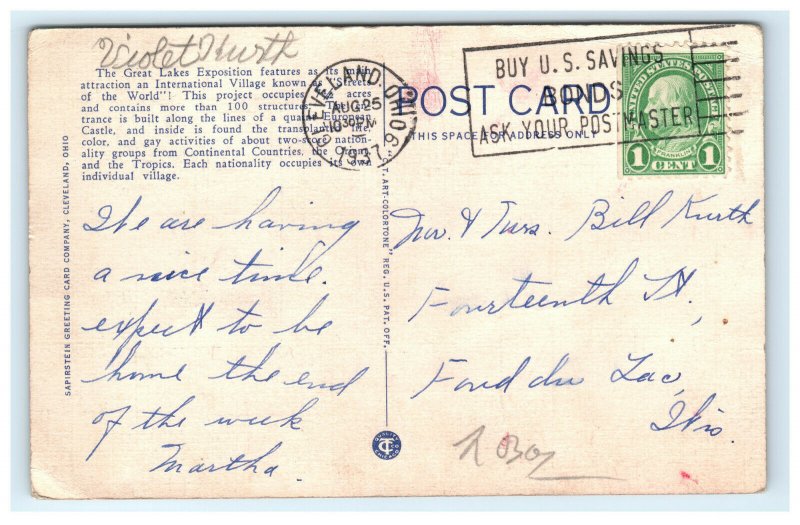 Violet Kurth
The Great Lakes Exposition features as its main
attraction an International Village known as "Street
of the World"! This project occupies acres
and contains more than 100 structures. The
trance is built along the lines of a quaint European
Castle, and inside is found the transplanted life,
color, and gay activities of about two-score nation-
ality groups from Continental Countries, the Orient
and the Tropics. Each nationality occupies its own
individual village.
CLEVELAND, OHIO
AUG 25
PM
1937
BUY U.S. SAVINGS
BONDS
ASK YOUR POSTMASTER
POST CARD
THIS SPACE FOR ADDRESS ONLY
UNITED STATES POSTAGE
FRANKLIN
1 CENT 1
SAPIRSTEIN GREETING CARD COMPANY, CLEVELAND, OHIO
ART-COLORTONE" REG. U.S. PAT. OFF.
We are having
a nice time.
expect to be
home the end
of the week
Martha.
Mr. & Mrs. Bill Kurth
Fourteenth St.
Fond du Lac,
Wis.
QUALITY
CT
CHICAGO